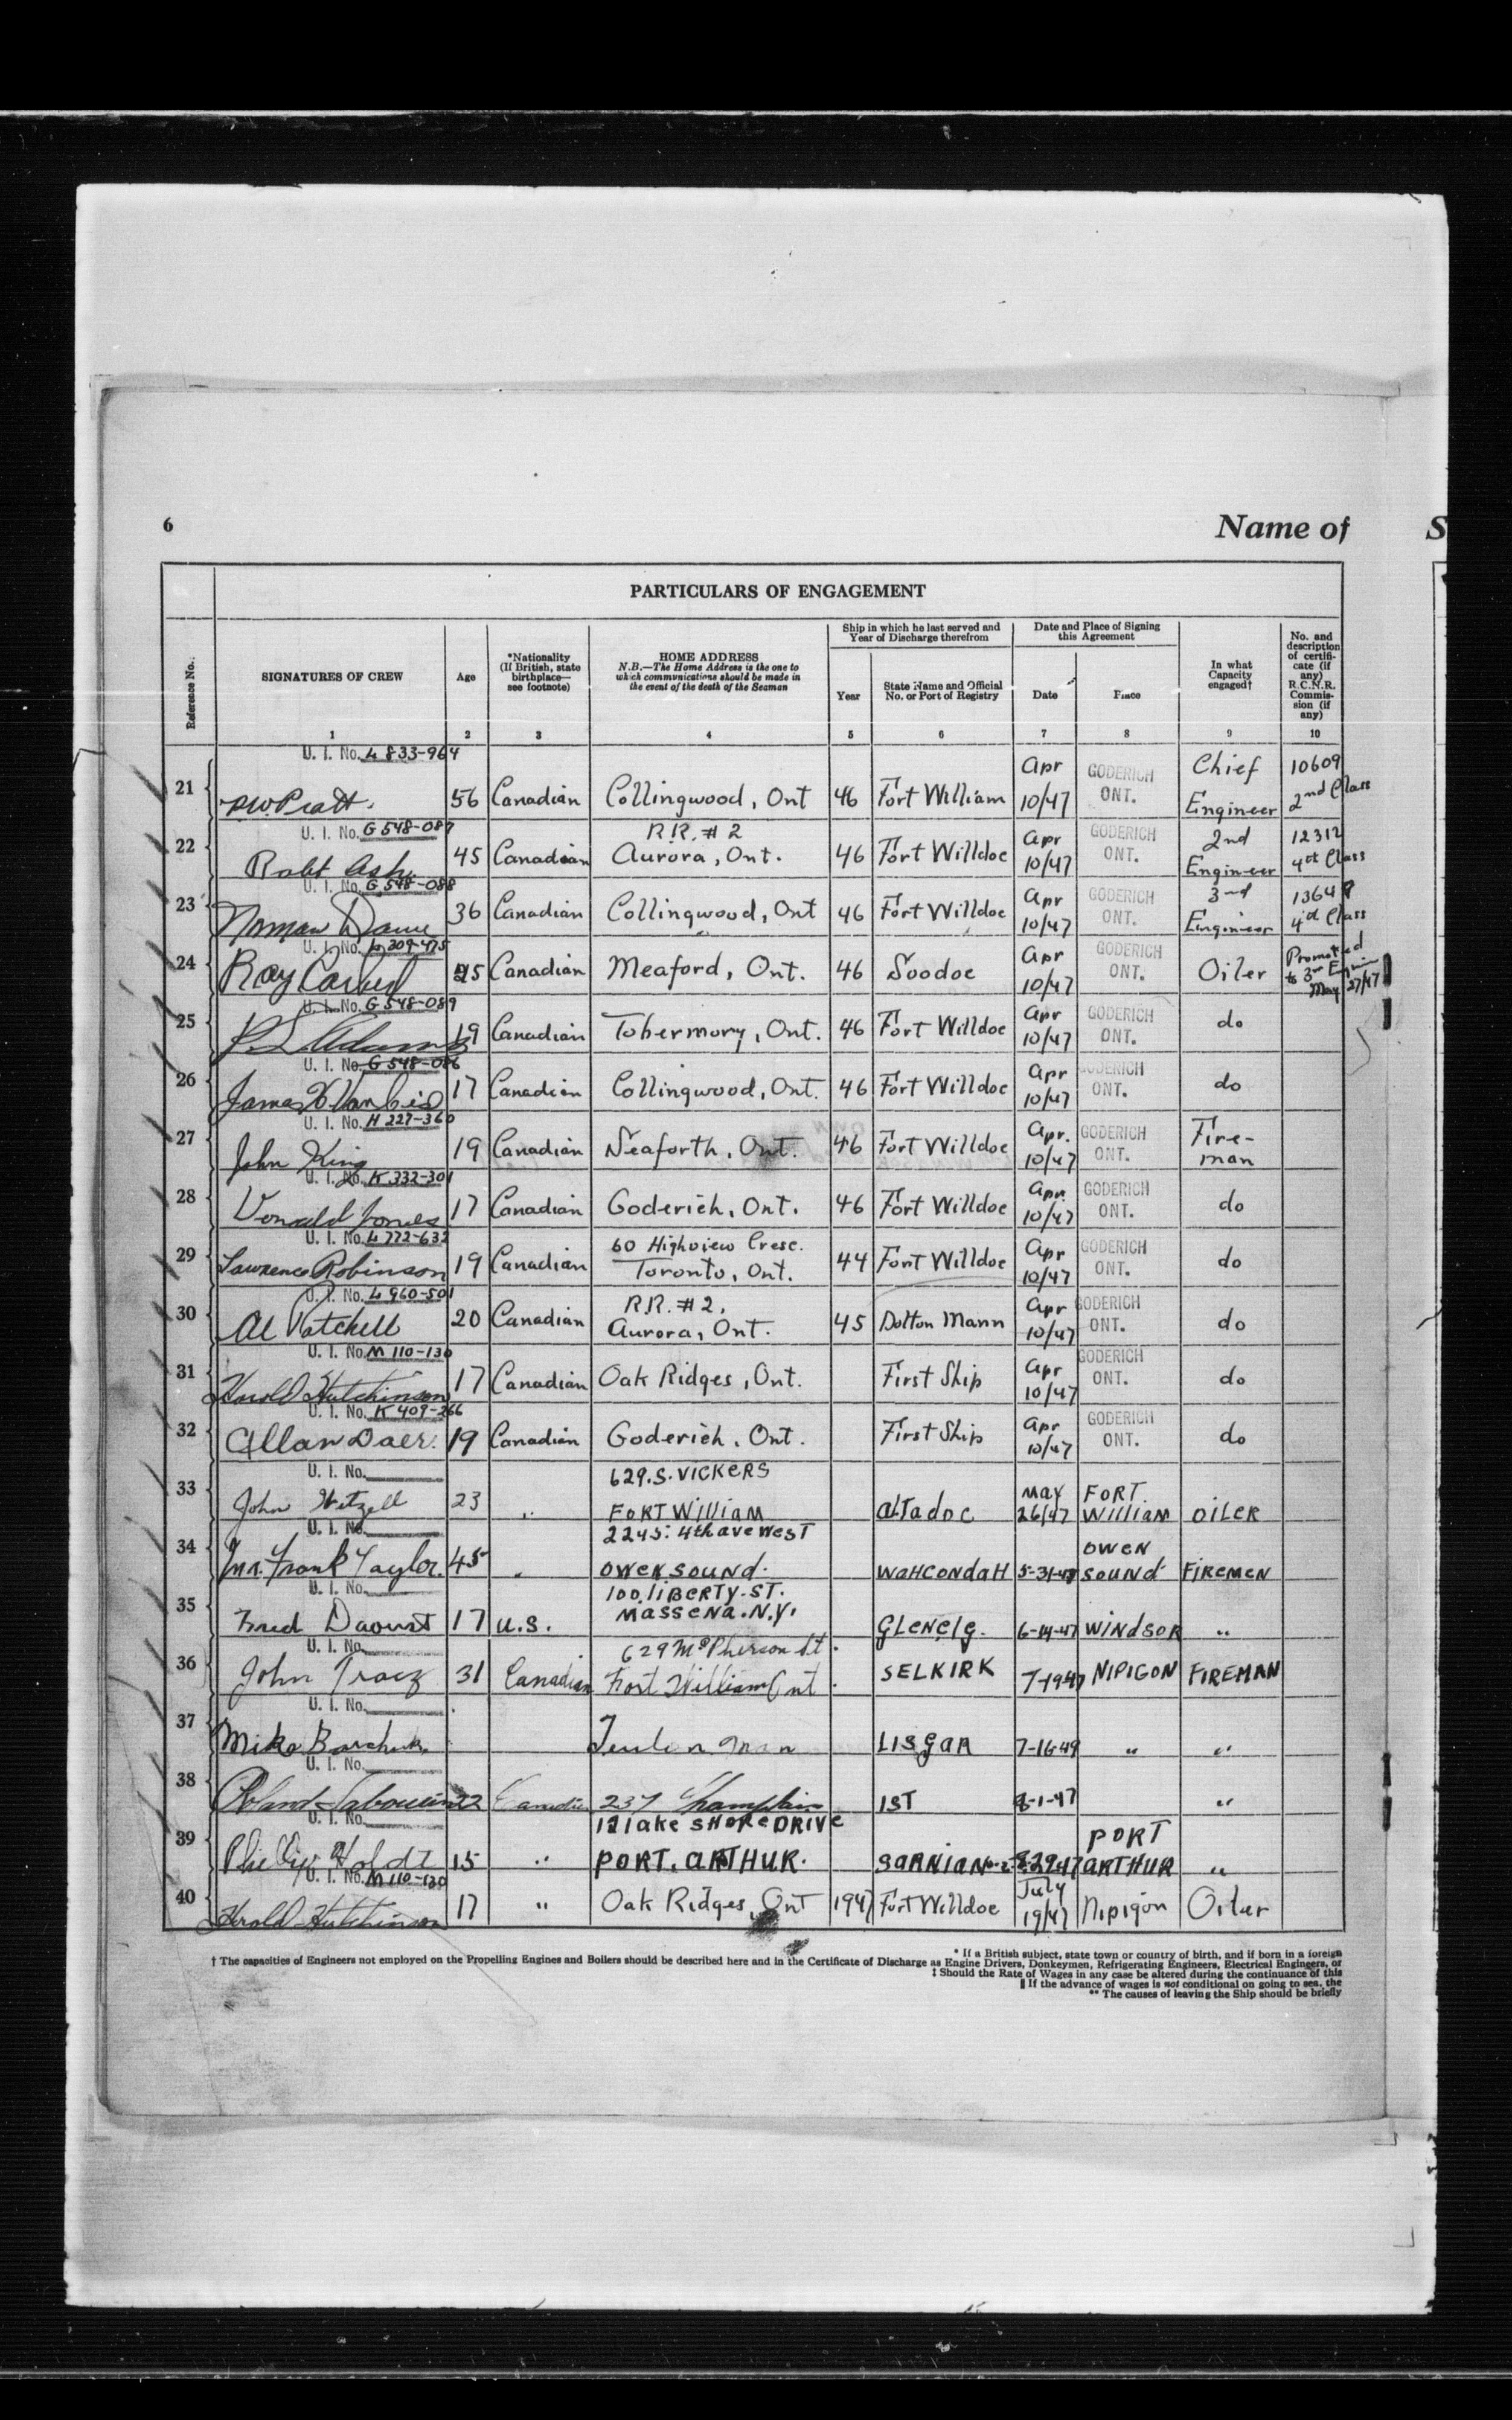 6
Name of
S
PARTICULARS OF ENGAGEMENT
Reference No.
SIGNATURES OF CREW
Age
*Nationality (If British, state birthplace— see footnote)
HOME ADDRESS
N.B.—The Home Address is the one to which communications should be made in the event of the death of the Seaman
Ship in which he last served and Year of Discharge therefrom
Year
State Name and Official No. or Port of Registry
Date and Place of Signing this Agreement
Date
Place
In what Capacity engaged†
No. and description of certificate (if any) R.C.N.R. Commission (if any)
1 2 3 4 5 6 7 8 9 10
U. I. No. L 833-964
21 Pratt. 56 Canadian Collingwood, Ont 46 Fort William Apr 10/47 GODERICH ONT. Chief Engineer 10609 2nd Class
U. I. No. G 548-087
22 Robt Ash 45 Canadian R.R. #2 Aurora, Ont. 46 Fort Willdoc Apr 10/47 GODERICH ONT. 2nd Engineer 12312 4th Class
U. I. No. G 548-088
23 Norman 36 Canadian Collingwood, Ont 46 Fort Willdoc Apr 10/47 GODERICH ONT. 3rd Engineer 1364 4th Class
U. I. No. 309-475
24 Ray 25 Canadian Meaford, Ont. 46 Soodoc Apr 10/47 GODERICH ONT. Oiler Promoted to 3rd Engin May 27/47
U. I. No. G 548-089
25 Adams 19 Canadian Tobermory, Ont. 46 Fort Willdoc Apr 10/47 GODERICH ONT. do
U. I. No. G 548-086
26 James 17 Canadian Collingwood, Ont. 46 Fort Willdoc Apr 10/47 GODERICH ONT. do
U. I. No. H 227-360
27 John King 19 Canadian Seaforth, Ont. 46 Fort Willdoc Apr. 10/47 GODERICH ONT. Fire-man
U. I. No. K 332-301
28 Donald Jones 17 Canadian Goderich, Ont. 46 Fort Willdoc Apr. 10/47 GODERICH ONT. do
U. I. No. L 772-632
29 Lawrence Robinson 19 Canadian 60 Highview Cresc. Toronto, Ont. 44 Fort Willdoc Apr 10/47 GODERICH ONT. do
U. I. No. L 960-501
30 Al Patchell 20 Canadian R.R. #2, Aurora, Ont. 45 Dolton Mann Apr 10/47 GODERICH ONT. do
U. I. No. M 110-130
31 Harold Hutchinson 17 Canadian Oak Ridges, Ont. First Ship Apr 10/47 GODERICH ONT. do
U. I. No. K 409-266
32 Allan Daer. 19 Canadian Goderich, Ont. First Ship Apr 10/47 GODERICH ONT. do
U. I. No.
33 John Wetzell 23 " 629.S. VICKERS FORT WILLIAM ALTADOC MAY 26/47 FORT WILLIAM OILER
U. I. No.
34 Mr. Frank Taylor. 45 " 2245: 4th ave West OWEN SOUND. WAHCONDAH 5-31-47 OWEN SOUND FIREMEN
U. I. No.
35 Fred Daoust 17 U.S. 100. LIBERTY. ST. MASSENA. N.Y. GLENELG. 6-14-47 WINDSOR "
U. I. No.
36 John 31 Canadian 629 McPherson St. Fort William Ont. SELKIRK 7-1947 NIPIGON FIREMAN
U. I. No.
37 Mike LISGAR 7-16-49 " "
U. I. No.
38 Roland 22 237 Champlain 1ST 8-1-47 "
U. I. No.
39 15 " 121ake SHORE DRIVE PORT. ARTHUR. SARNIAN 8-29-47 PORT ARTHUR "
U. I. No. M 110-130
40 Harold Hutchinson 17 " Oak Ridges, Ont 1947 Fort Willdoc July 19/47 Nipigon Oiler
* If a British subject, state town or country of birth, and if born in a foreign
† The capacities of Engineers not employed on the Propelling Engines and Boilers should be described here and in the Certificate of Discharge as Engine Drivers, Donkeymen, Refrigerating Engineers, Electrical Engineers, or
‡ Should the Rate of Wages in any case be altered during the continuance of this
‖ If the advance of wages is not conditional on going to sea, the
** The causes of leaving the Ship should be briefly